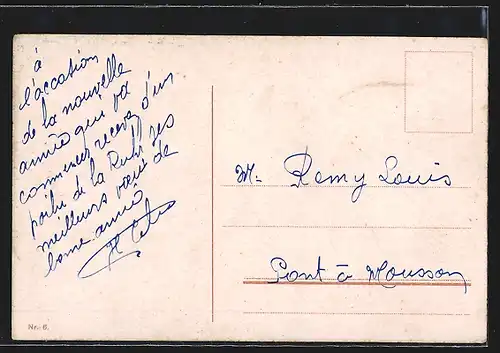 à
l'accation
de la nouvelle
année qui va
commencer recevez d'un
poilu de la Ruhr ses
meilleurs vœux de
bonne année
M. Remy Louis
Pont à Mousson
Nr. 6.